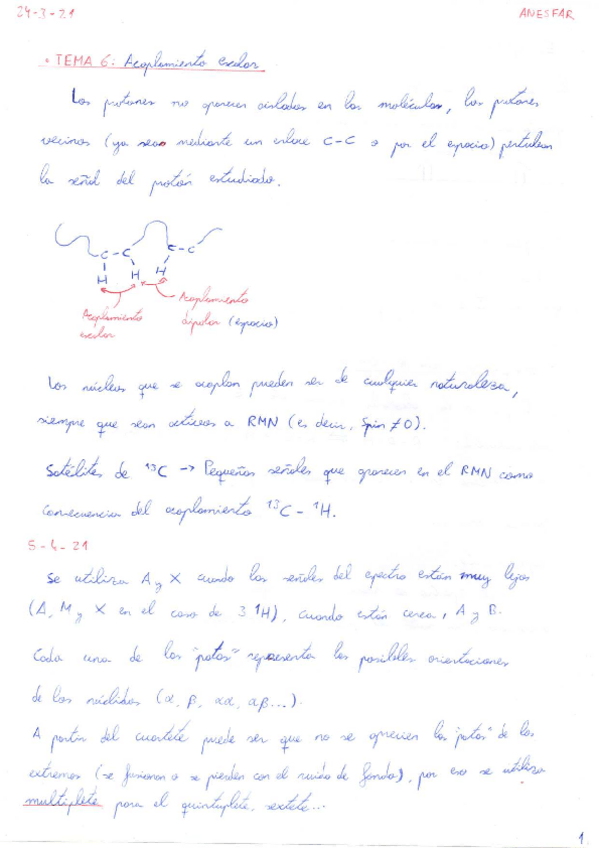 24-3-21
ANESFAR
• TEMA 6: Acoplamiento escalar
Los protones no aparecen aislados en las moléculas, los protones
vecinos (ya sea mediante un enlace C-C o por el espacio) perturban
la señal del protón estudiado.
C-C C-C
H H H
Acoplamiento
escalar
Acoplamiento
dipolar (espacio)
Los núcleos que se acoplan pueden ser de cualquier naturaleza,
siempre que sean activos a RMN (es decir, Spin ≠ 0).
Satélites de ¹³C → Pequeñas señales que aparecen en el RMN como
consecuencia del acoplamiento ¹³C - ¹H.
5-4-21
Se utiliza A y X cuando las señales del espectro están muy lejos
(A, M y X en el caso de 3 ¹H), cuando están cerca, A y B.
Cada una de las "patas" representa las posibles orientaciones
de los núclidos (α, β, αα, αβ...).
A partir del cuartete puede ser que no se aprecien las "patas" de los
extremos (se fusionan o se pierden con el ruido de fondo), por eso se utiliza
multiplete para el quintuplete, sextete...
1